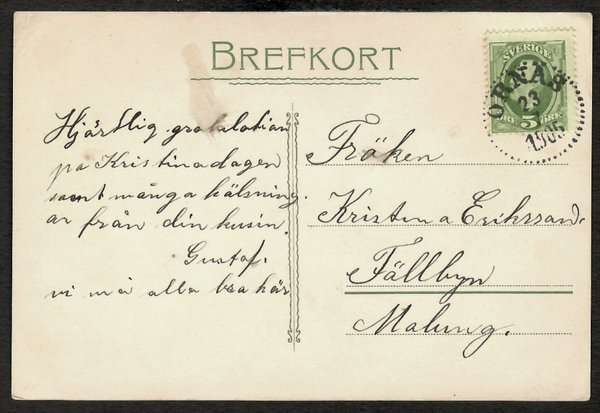 BREFKORT
SVERIGE
ORNÄS
23
1905
5
ÖRE
Hjärtlig gratulation
på Kristinadagen
samt många hälsning
ar från din kusin.
Gustaf.
vi må alla bra här
Fröken
Kristina Eriksson
Fällbyn
Malung.